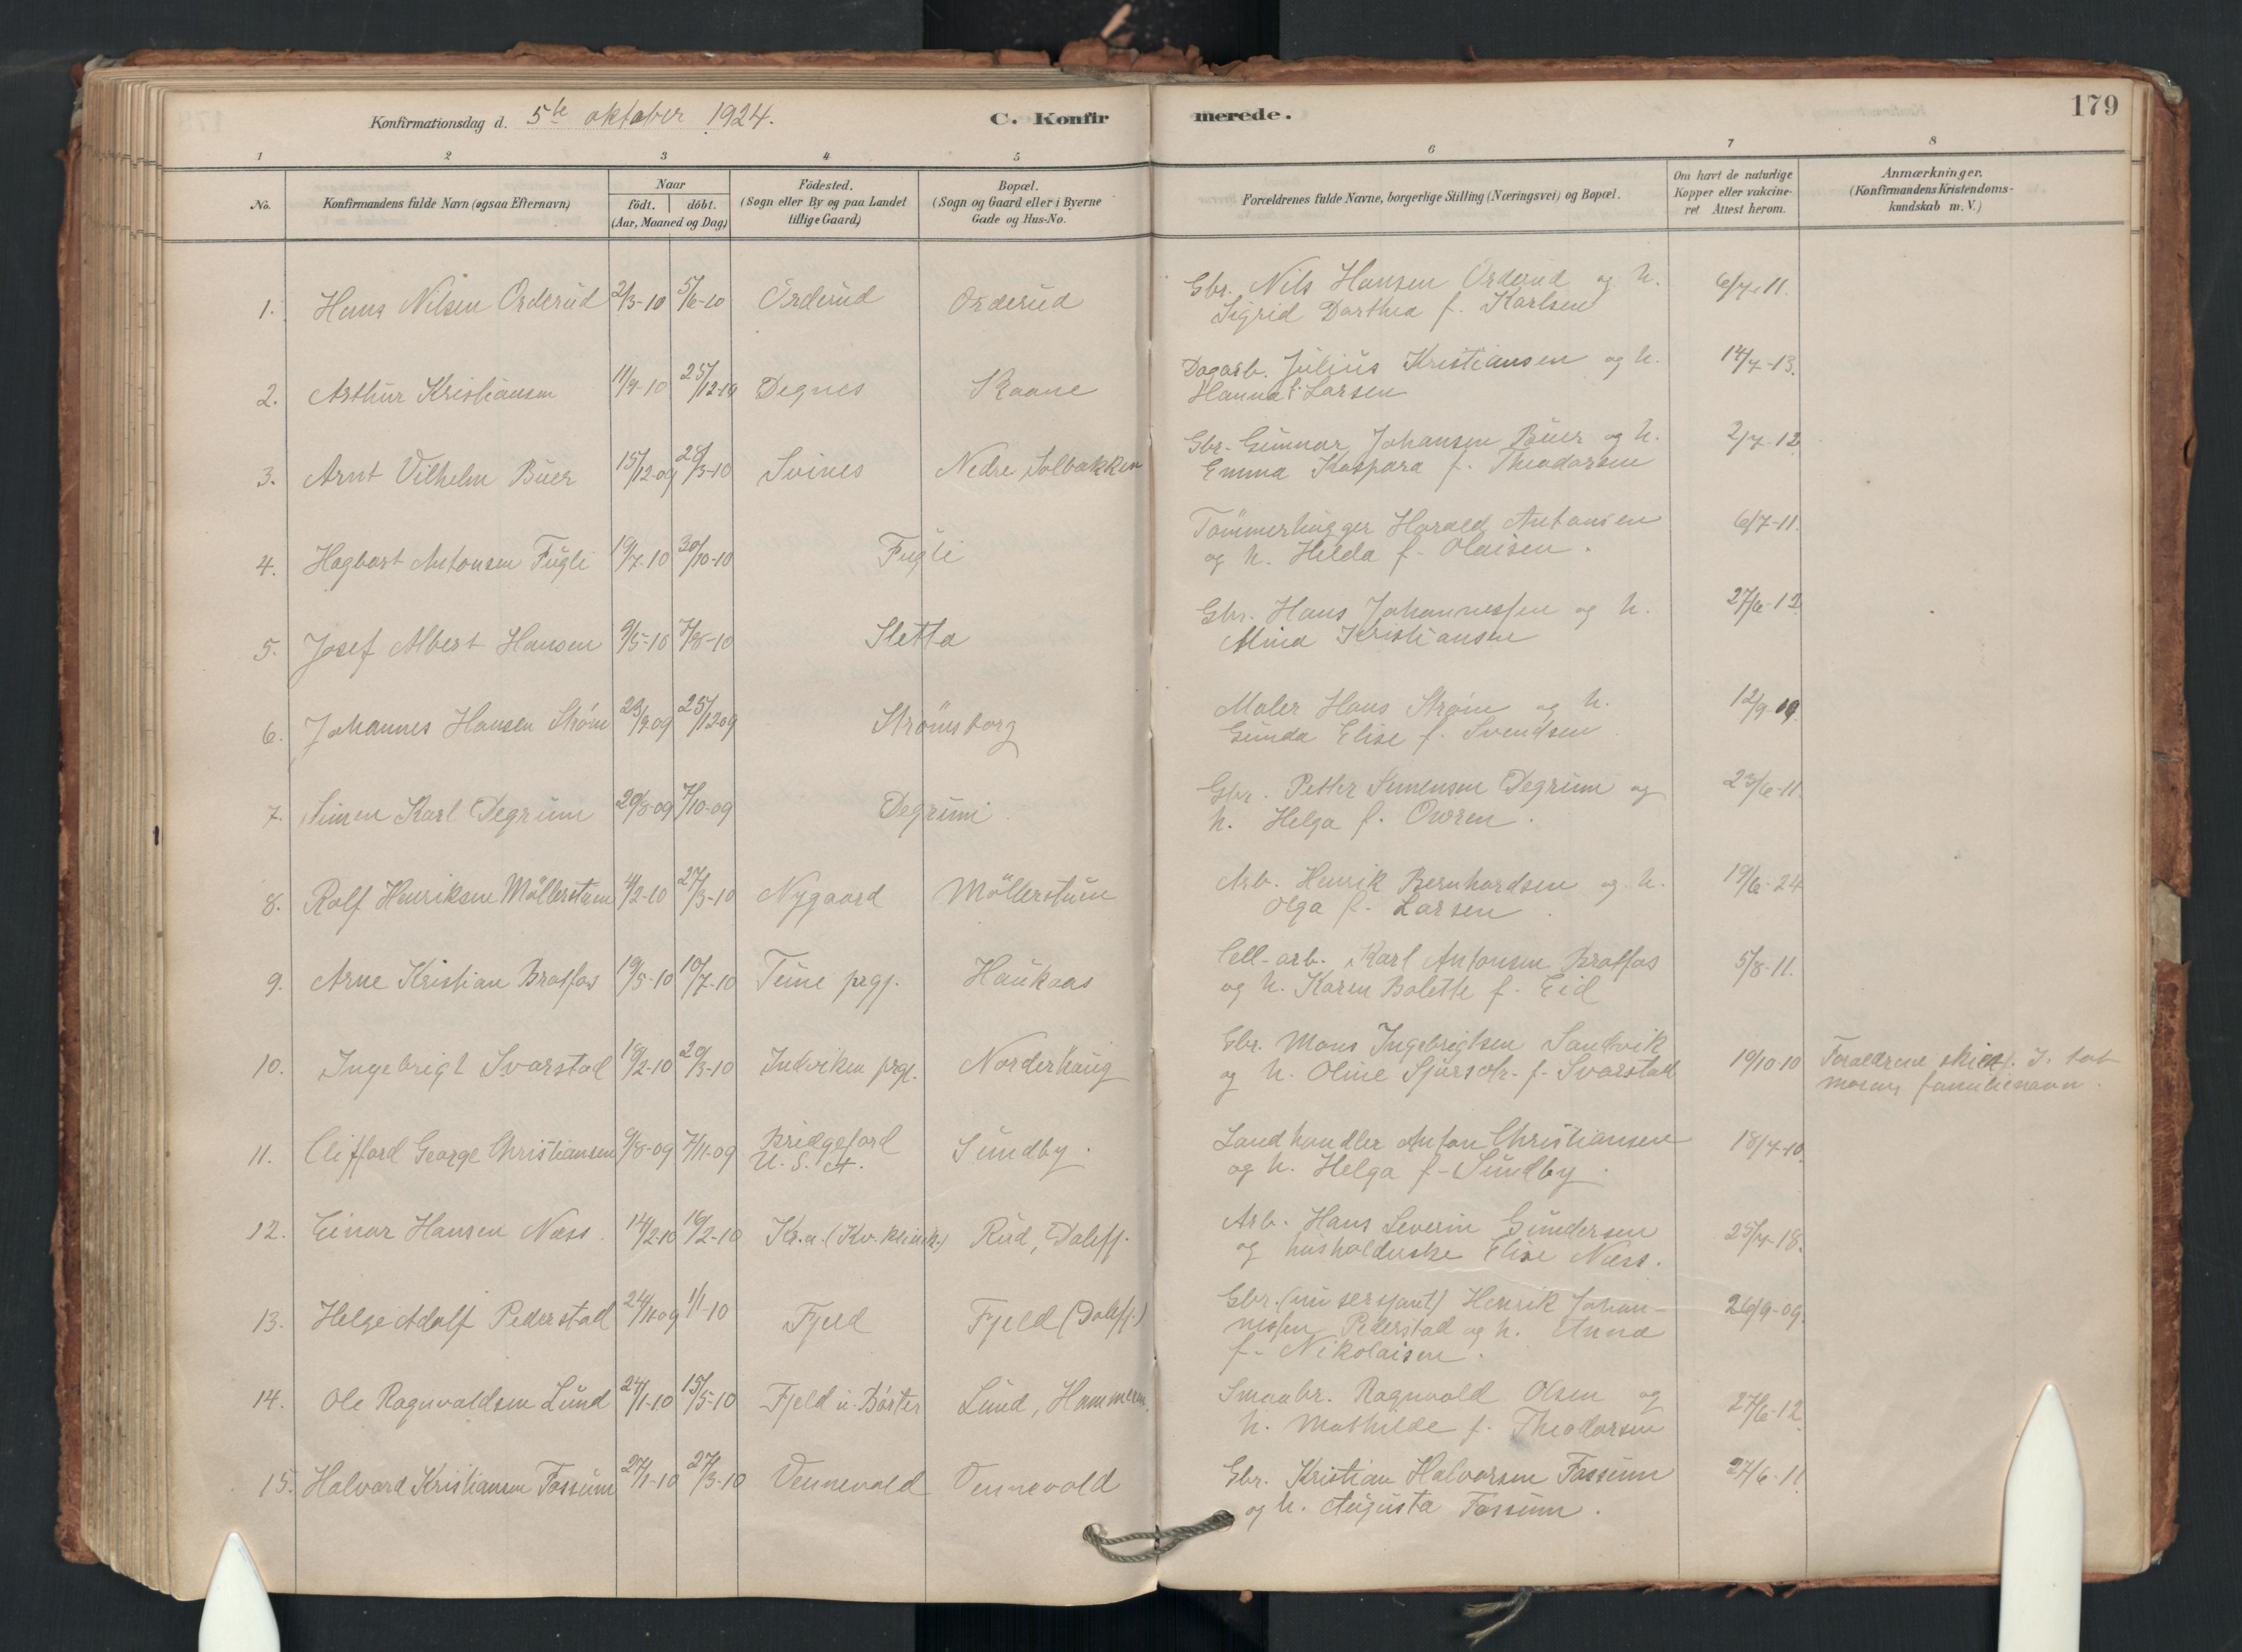 Konfirmationsdag d. 5te oktober 1924.
C. Konfirmerede.
179
1 2 3 4 5 6 7 8
No.
Konfirmandens fulde Navn (ogsaa Efternavn)
Naar
födt. döbt.
(Aar, Maaned og Dag)
Födested.
(Sogn eller By og paa Landet
tillige Gaard)
Bopæl.
(Sogn og Gaard eller i Byerne
Gade og Hus-No.
Forældrenes fulde Navne, borgerlige Stilling (Næringsvei) og Bopæl.
Om havt de naturlige
Kopper eller vakcine-
ret Attest herom.
Anmærkninger.
(Konfirmandens Kristendoms-
kundskab m. V.)
1. Hans Nilsen Orderud 2/3-10 5/6-10 Orderud Orderud
Gbr. Nils Hansen Orderud og h. 6/7-11.
Sigrid Dorthea f. Karlsen
2. Arthur Kristiansen 11/9-10 25/12-10 Degnes Skaane
Dagarb. Julius Kristiansen og h. 14/7-13.
Hanna f. Larsen
3. Arnt Vilhelm Buer 15/12-09 28/3-10 Svines Nedre Solbakken
Gbr. Gunnar Johansen Buer og h. 2/7-12
Emma Kaspara f. Theodorsen
4. Hagbart Antonsen Fugli 19/7-10 30/10-10 Fugli
Tömmerhugger Harald Antonsen 6/7-11.
og h. Helda f. Olaisen.
5. Josef Albert Hansen 9/5-10 7/8-10 Sletta
Gbr. Hans Johannessen og h. 27/6-12
Mina Kristiansen
6. Johannes Hansen Strøm 23/9-09 25/12-09 Strömsborg
Maler Hans Strøm og h. 12/9-19.
Gunda Elise f. Svendsen
7. Simen Karl Degrum 29/8-09 7/10-09 Degrum
Gbr. Petter Simensen Degrum og 23/6-11.
h. Helga f. Owren.
8. Rolf Henriksen Möllerstuen 4/2-10 27/3-10 Nygaard Möllerstuen
Arb. Henrik Bernhardsen og h. 19/6-24
Olga f. Larsen.
9. Arne Kristian Bratfos 19/5-10 10/7-10 Tune prgj. Haukaas
Cell-arb. Karl Antonsen Bratfos 5/8-11.
og h. Karen Bolette f. Eid
10. Ingebrigt Svarstad 19/2-10 20/3-10 Indviken prgj. Norderhaug
Gbr. Mons Ingebrigtsen Sandvik 19/10-10 Forældrene skilt. I. tat
og h. Oline Sjursdr. f. Svarstad morens familienavn.
11. Clifford George Christiansen 9/8-09 7/11-09 Bridgeford Sundby.
U. S. A.
Landhandler Anton Christiansen 18/7-10.
og h. Helga f. Sundby.
12. Einar Hansen Næss. 14/2-10 16/2-10 Kr.a. (Kv. klinik.) Rud, Dalefj.
Arb. Hans Severin Gundersen 25/4-18.
og husholderske Elise Næss.
13. Helge Adolf Pederstad 24/11-09 1/1-10 Fjeld Fjeld (Dalefj.)
Gbr. (nu sersjant) Henrik Johan- 26/9-09.
nessen Pederstad og h. Anna
f. Nikolaisen.
14. Ole Ragnvaldsen Lund 24/1-10 15/5-10 Fjeld u. Börter Lund, Hammeren.
Smaabr. Ragnvald Olsen og 27/6-12
h. Mathilde f. Theodorsen
15. Halvard Kristiansen Fossum 27/1-10 27/3-10 Vennevold Vennevold
Gbr. Kristian Halvorsen Fossum 27/6-11
og h. Augusta Fossum.